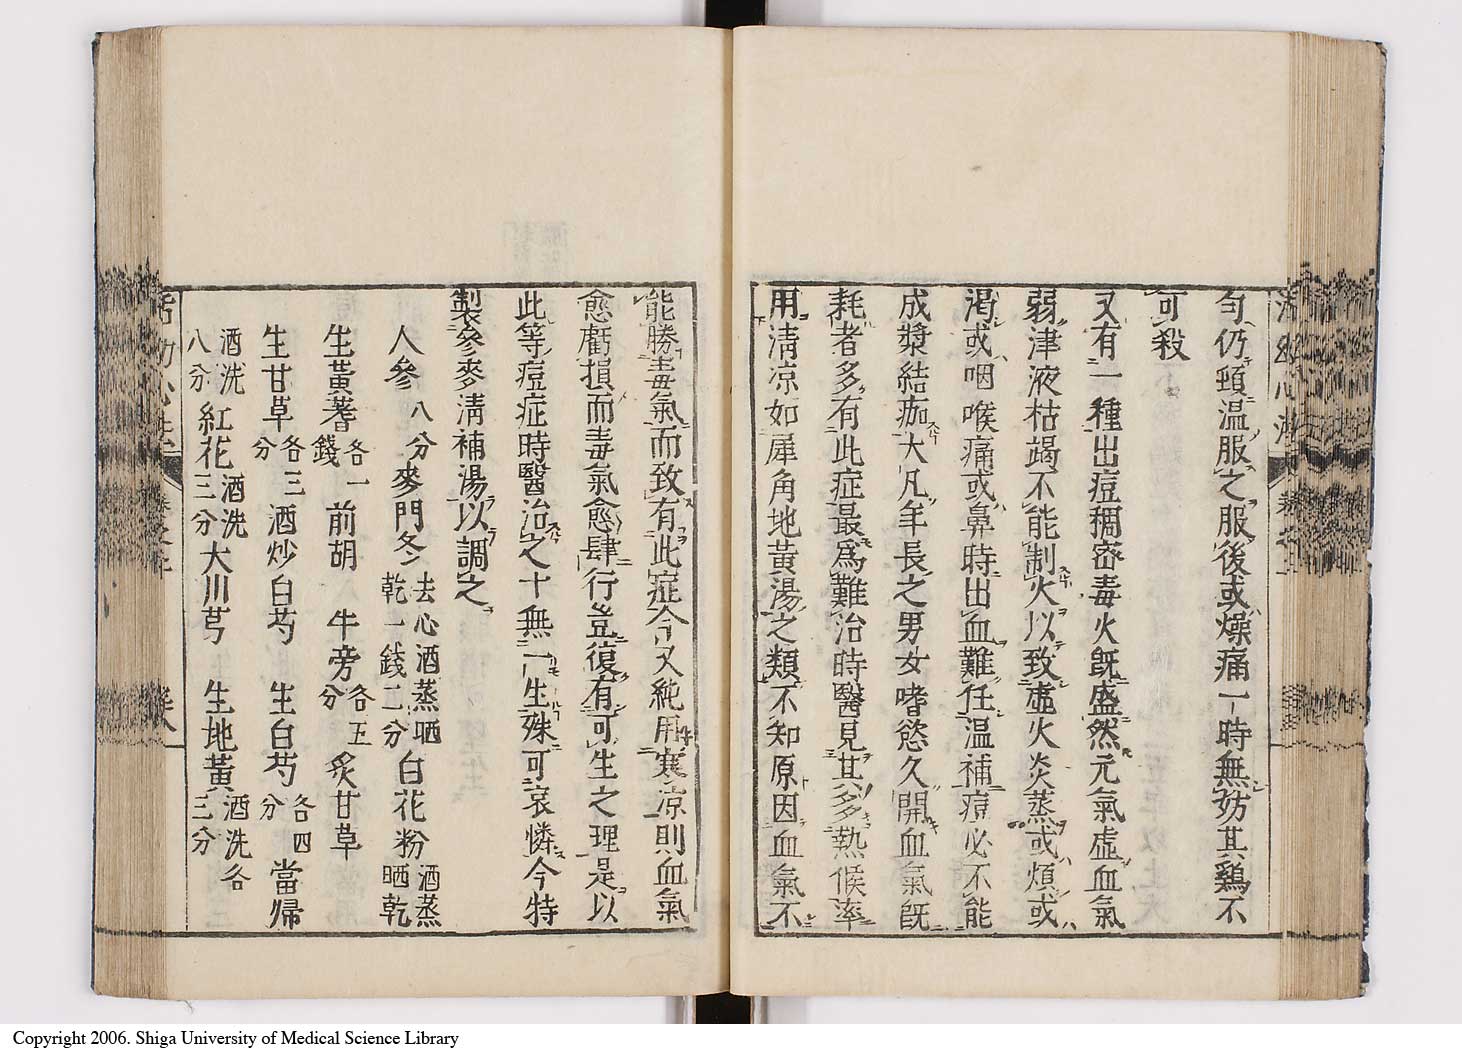 勻仍頓温服之服後或燥痛一時無妨其鷄不
可殺
又有一種出痘稠密毒火旣盛然元氣虛血氣
弱津液枯竭不能制火以致虛火炎蒸或煩或
渴或咽喉痛或鼻時出血難任温補痘必不能
成漿結痂大凡年長之男女嗜慾久開血氣旣
耗者多有此症最爲難治時醫見其多熱候率
用清凉如犀角地黃湯之類不知原因血氣不
能勝毒氣而致有此症今又純用寒凉則血氣
愈虧損而毒氣愈肆行豈復有可生之理是以
此等痘症時醫治之十無一生殊可哀憐今特
製參麥清補湯以調之
人參八分 麥門冬去心酒蒸晒乾一錢二分 白花粉酒蒸晒乾
生黃耆各一錢 前胡 牛旁各五分 炙甘草
生甘草各三分 酒炒白芍 生白芍各四分 當歸
酒洗八分 紅花酒洗三分 大川芎 生地黃酒洗各三分
活幼心法 卷之
Copyright 2006. Shiga University of Medical Science Library